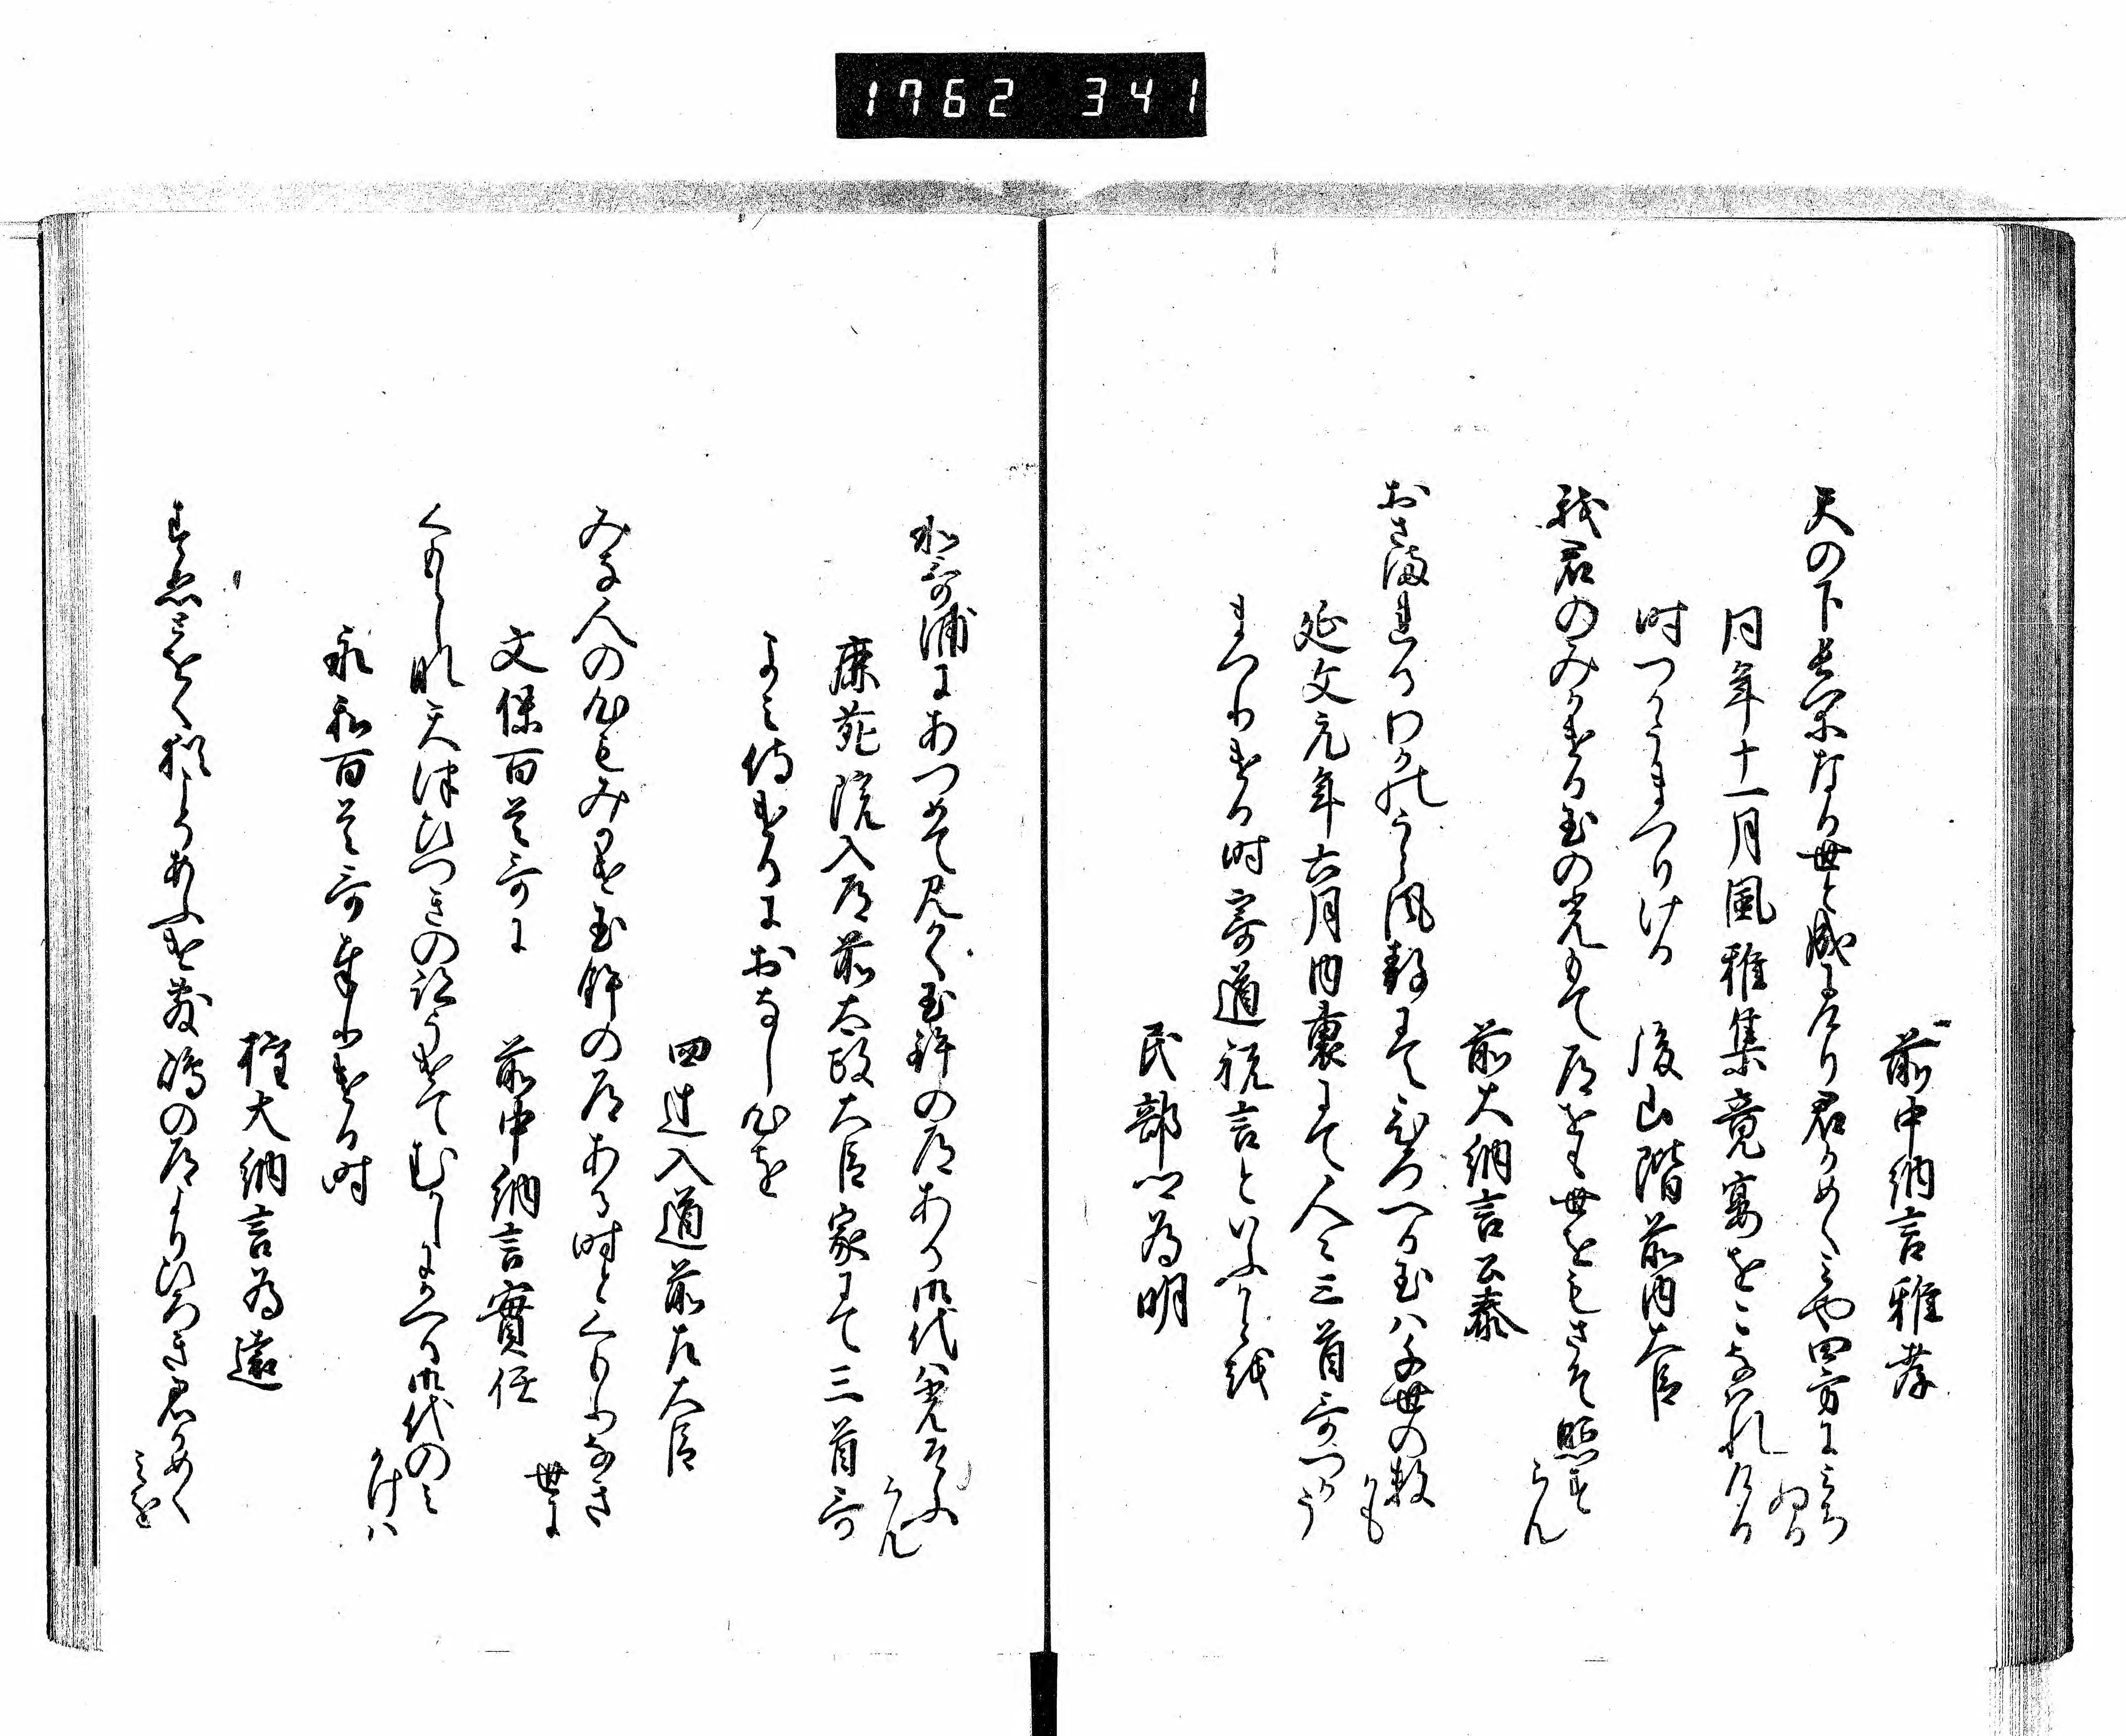 1762 341
前中納言雅孝
天の下長閑なる世と成にけり君かめくみや四方にみち
ぬる
同年十一月風雅集竟宴をこなはれける
時つかうまつりける　後山階前内大臣
我君のみかける玉の光もて道をも世をもさそ照す
らん
前大納言公泰
おさまれるわかのうら風静にてひろへる玉は千世の数
かも
延文元年六月内裏にて人々三首哥つかう
まつりける時寄道祝言といふ事を
民部卿為明
和哥浦にあつめてみかく玉津の道ある御代は光そふ
らん
鹿苑院入道前太政大臣家にて三首哥
よみ侍けるにおなし心を
四辻入道前左大臣
みな人の心もみかけ玉鉾の道ある時とくもりなき
世に
文保百首哥に　前中納言實任
くもりなき天津ひつきの詔うけてむかしにかへる御代の
かけは
永和百首哥奉りける時
権大納言為遠
すゑとをく猶そあふけ敷嶋の道よりひろき君かめく
みを